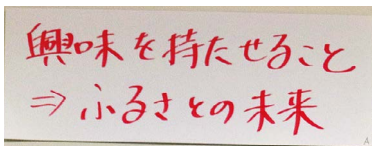 興味を持たせること
⇒ ふるさとの未来